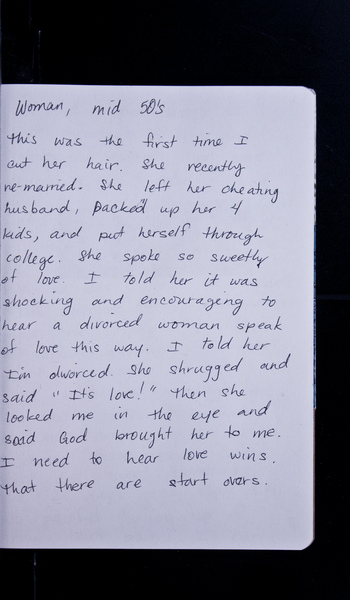 Woman, mid 50's
This was the first time I
cut her hair. She recently
re-married. She left her cheating
husband, packed up her 4
kids, and put herself through
college. She spoke so sweetly
of love. I told her it was
shocking and encourageing to
hear a divorced woman speak
of love this way. I told her
I'm divorced. She shrugged and
said "It's love!" Then she
looked me in the eye and
said God brought her to me.
I need to hear love wins.
That there are start overs.